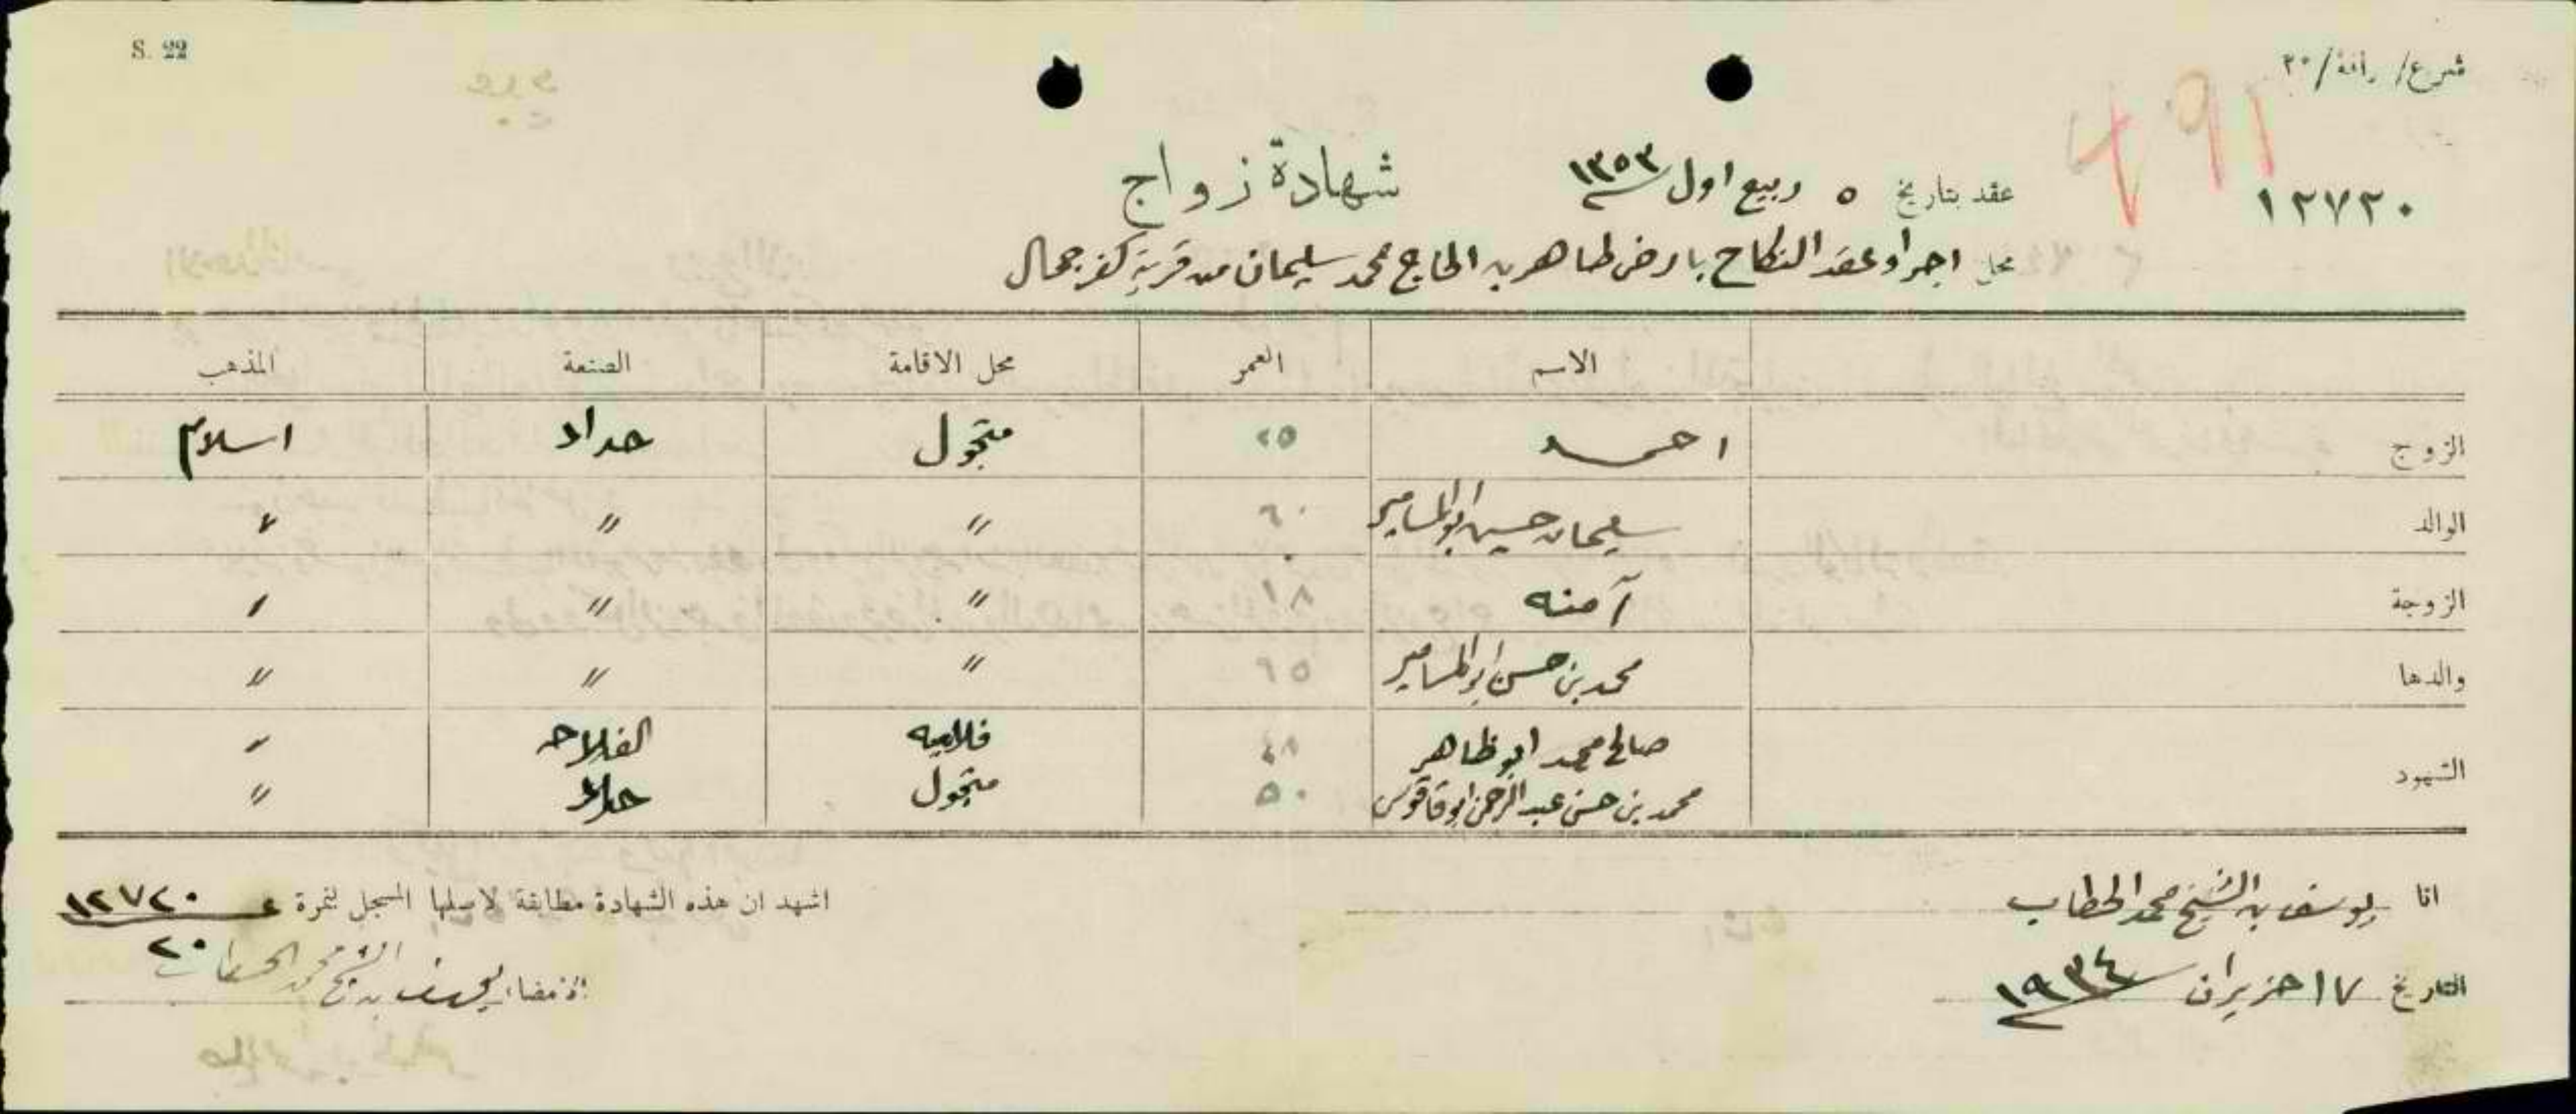 S. 22
شرع/رافة/٣٠
491
١٢٧٢٠
عقد بتاريخ ٥ ربيع اول ١٣٥٣
شهادة زواج
محل اجراء عقد النكاح بارض طاهر بن الحاج محمد سليمان من قرية كفر جمال
الاسم العمر محل الاقامة الصنعة المذهب
الزوج احمد ٢٥ متجول حداد اسلام
الوالد سليمان حسين ابو المسامير ٦٠ " " "
الزوجة آمنه ١٨ " " "
والدها محمد بن حسن ابو المسامير ٦٥ " " "
الشهود صالح محمد ابو ظاهر ٤٨ الفلاحه "
محمد بن حسن عبد الرحمن ابو قاقوش ٥٠ متجول حداد "
انا يوسف بن الشيخ محمد الحطاب
اشهد ان هذه الشهادة مطابقة لاصلها المسجل لنمرة ١٢٧٢٠
التاريخ ١٧ حزيران ١٩٣٤
الامضاء يوسف بن الشيخ محمد الحطاب ٢٠